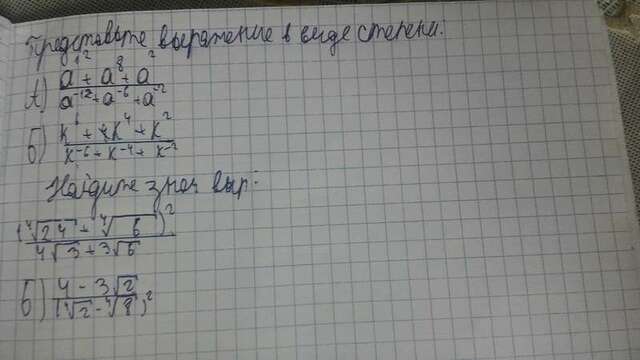 Представьте выражение в виде степени.
А) a^12 + a^8 + a^2 / a^-12 + a^-6 + a^-2
Б) k^6 + k^4 + k^2 / k^-6 + k^-4 + k^-2
Найдите знач выр:
(∜24 + ∜6)^2 / 4√3 + 3√6
Б) 4 - 3√2 / (∜2 - ∜8)^2